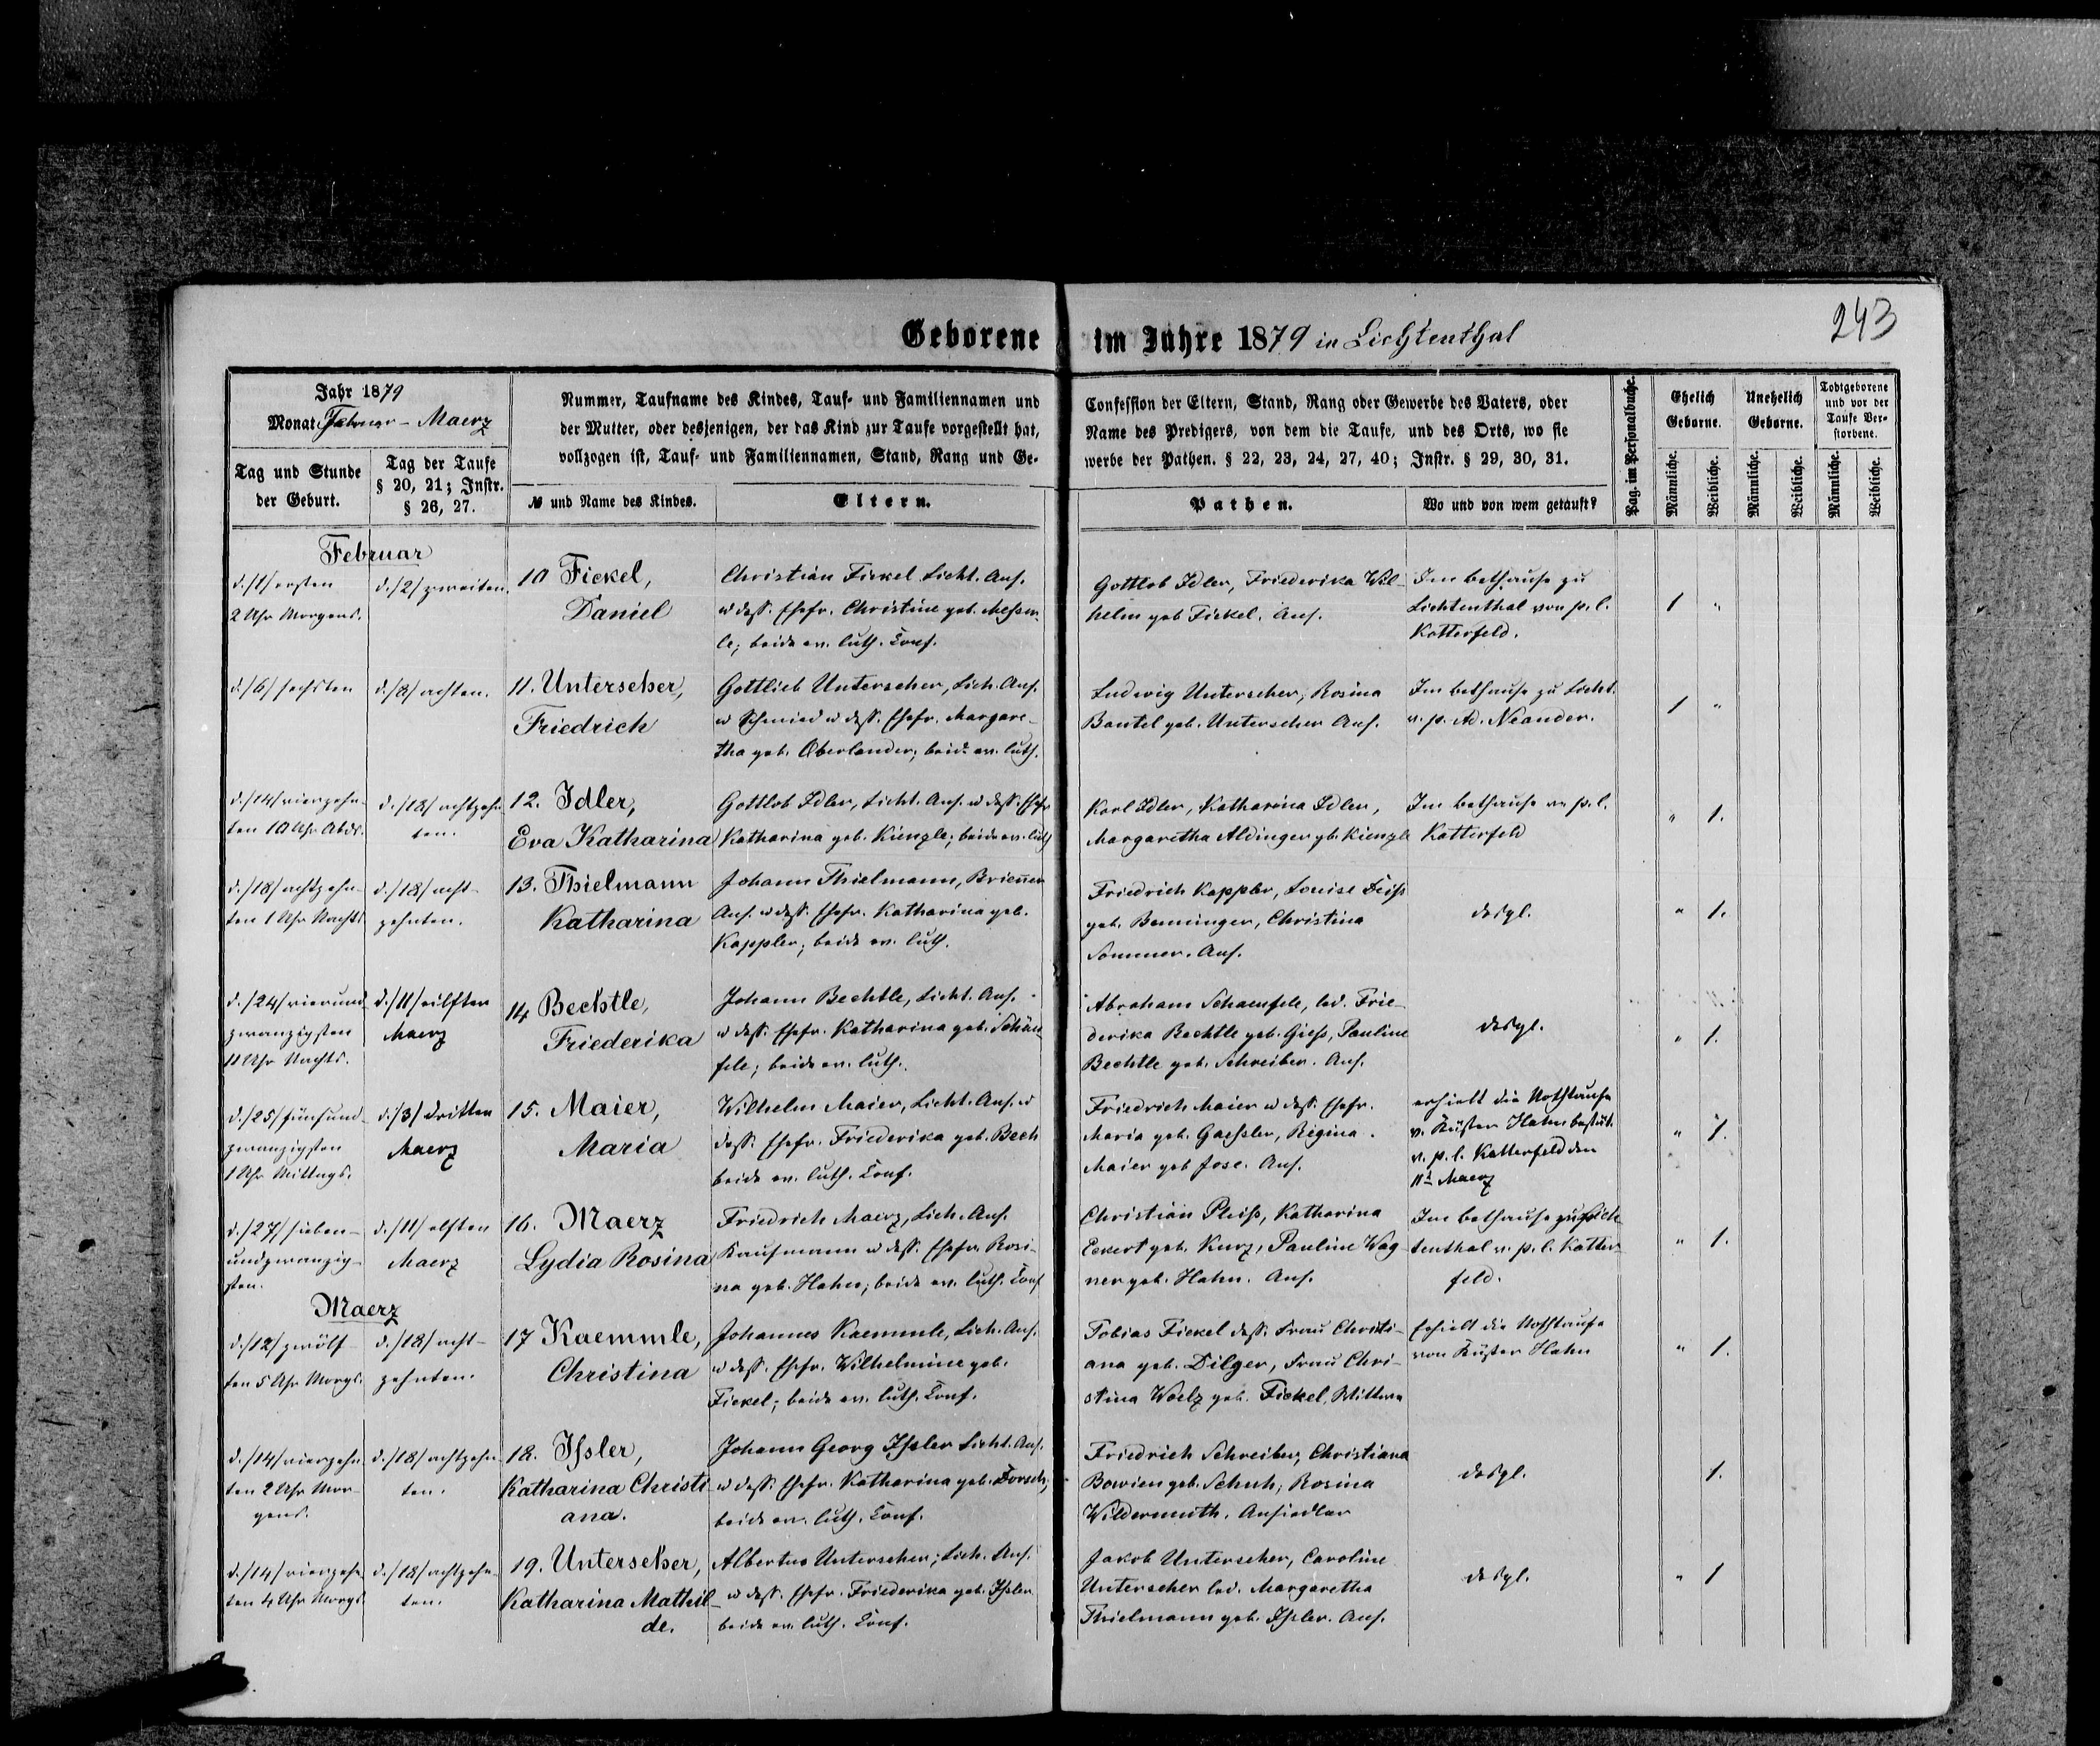 243
Geborene im Jahre 1879 in Lichtenthal
Jahr 1879
Monat Februar - Maerz
Tag und Stunde
der Geburt.
Tag der Taufe
§ 20, 21; Instr.
§ 26, 27.
Nummer, Taufname des Kindes, Tauf- und Familiennamen und
der Mutter, oder desjenigen, der das Kind zur Taufe vorgestellt hat,
vollzogen ist, Tauf- und Familiennamen, Stand, Rang und Ge-
№ und Name des Kindes.
Eltern.
Confession der Eltern, Stand, Rang oder Gewerbe des Vaters, oder
Name des Predigers, von dem die Taufe, und des Orts, wo sie
werbe der Pathen. § 22, 23, 24, 27, 40; Instr. § 29, 30, 31.
Pathen.
Wo und von wem getauft?
Pag. im Personalbuche.
Ehelich
Geborne.
Unehelich
Geborne.
Todtgeborene
und vor der
Taufe Ver-
storbene.
Männliche.
Weibliche.
Männliche.
Weibliche.
Männliche.
Weibliche.
Februar
d. /1/ ersten
2 Uhr Morgens.
d. /2/ zweiten.
10 Fickel,
Daniel
Christian Fickel Licht. Ans.
u dess. Ehefr. Christine geb.
le; beide ev. luth. Conf.
Gottlob Idler, Friederika Wil-
helm geb Fickel. Ans.
Im bethause zu
Lichtenthal von p. l.
Katterfeld.
1 "
d. /6/ sechsten
d. /8/ achten.
11. Unterseher,
Friedrich
Gottlieb Unterseher, Lich. Ans.
u Schmied u dess. Ehefr. Margare-
tha geb. Oberlander; beide ev. luth.
Ludwig Unterseher, Rosina
Bantel geb. Unterseher Ans.
Im bethause zu Licht.
v. p. Ad. Neander.
1 "
d. /14/ vierzehn-
ten 10 Uhr Abds.
d. /18/ achtzehn
ten.
12. Idler,
Eva Katharina
Gottlob Idler, Licht. Ans. u dess. Ehefr
Katharina geb. Kienzle; beide ev. luth
Karl Idler, Katharina Idler,
Margaretha Aldinger gb. Kienzle
Im bethause v. p. l.
Katterfeld
" 1.
d. /18/ achtzehn-
ten 1 Uhr Nachts
d. /18/ acht-
zehnten.
13. Thielmann
Katharina
Johann Thielmann, Brienner
Ans. u dess. Ehefr. Katharina geb.
Kappler; beide ev. luth.
Friedrich Kappler, Louise
geb. Benninger, Christina
Sommer. Ans.
desgl.
" 1.
d. /24/ vierund
zwanzigsten
11 Uhr Nachts.
d. /11/ eilften
Maerz
14 Bechtle,
Friederika
Johann Bechtle, Licht. Ans.
u dess. Ehefr. Katharina geb. Schäu
fele; beide ev. luth.
Abraham Schaeufele, led. Frie-
derika Bechtle geb. Giess, Pauline
Bechtle geb. Schreiber. Ans.
desgl.
" 1.
d. /25/ fünfund-
zwanzigsten
1 Uhr Mittags.
d. /3/ dritten
Maerz
15. Maier,
Maria
Wilhelm Maier, Licht. Ans. u
dess. Ehefr. Friederika geb. Bech
beide ev. luth. Conf.
Friedrich Maier u dess. Ehefr.
Maria geb. Gaessler, Regina
Maier geb Jose. Ans.
erhielt die Nothtaufe
v. Küster Hahn bestät.
v. p. l. Katterfeld den
11t Maerz
" 1.
d. /27/ sieben-
undzwanzig-
sten.
d. /11/ elften
Maerz
16. Maerz
Lydia Rosina
Friedrich Maerz, Lich. Ans.
Kaufmann u dess. Ehefr. Rosi-
na geb. Hahn; beide ev. luth. Conf
Christian Pleiss, Katharina
Eckert geb. Kurz, Pauline Wag-
ner geb. Hahn. Ans.
Im bethause zu Lich
tenthal v. p. l. Katter
feld.
" 1.
Maerz
d. /12/ zwölf-
ten 5 Uhr Morgs.
d. /18/ acht-
zehnten.
17 Kaemmle,
Christina
Johannes Kaemmle, Lich. Ans.
u dess. Ehefr. Wilhelmine geb.
Fickel; beide ev. luth. Conf.
Tobias Fickel dess. Frau Christi-
ana geb. Dilger, Frau Chri-
stina Woelz geb. Fickel, Wittwe
Erhielt die Nothtaufe
von Küster Hahn
" 1.
d. /14/ vierzehn
ten 2 Uhr Mor-
gens.
d. /18/ achtzehn-
ten.
18. Issler,
Katharina Christi-
ana.
Johann Georg Issler Licht. Ans.
u dess. Ehefr. Katharina geb. Dorsch;
beide ev. luth. Conf.
Friedrich Schreiber, Christiana
geb. Schuh, Rosina
Wildermuth. Ansiedler
desgl.
1.
d. /14/ vierzehn
ten 4 Uhr Morgs
d. /18/ achtzehn-
ten.
19. Unterseher,
Katharina Mathil-
de.
Albertus Unterseher; Lich. Ans.
u dess. Ehefr. Friederika geb. Issler
beide ev. luth. Conf.
Jakob Unterseher, Caroline
Unterseher led. Margaretha
Thielmann geb. Issler. Ans.
desgl.
" 1